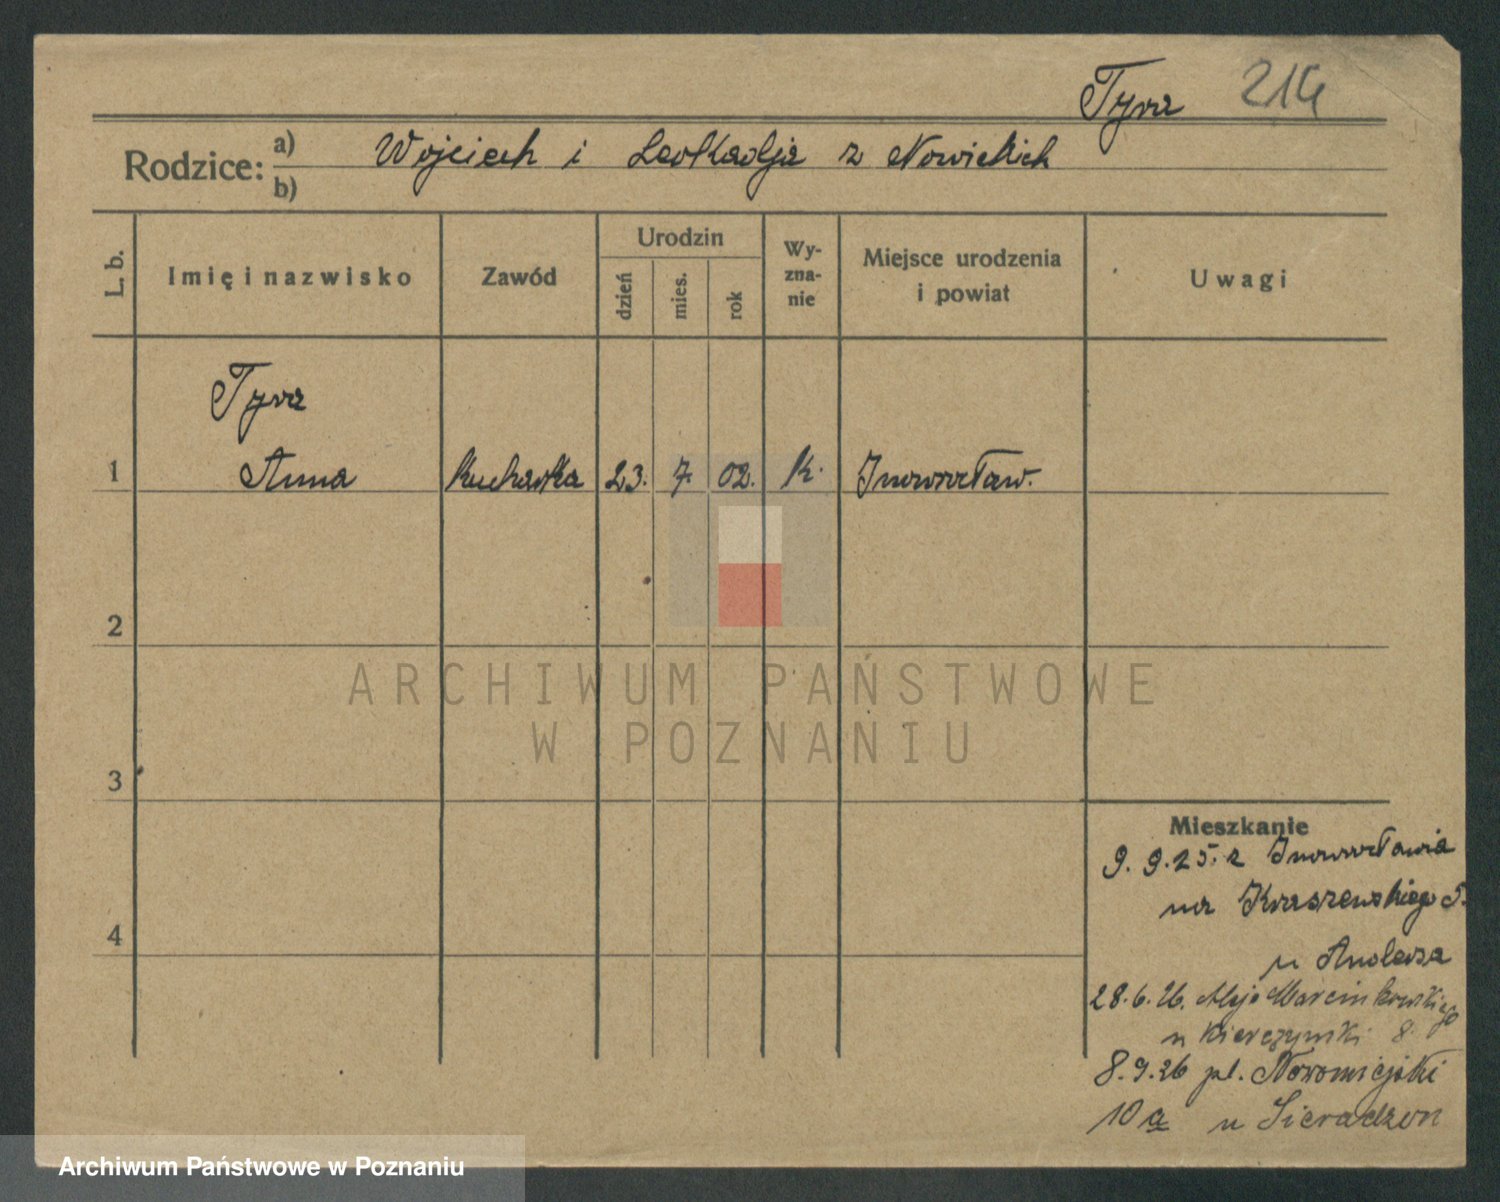 Tyra 214
Rodzice: a) Wojciech i Leokadja z Nowickich
b)
L. b.
Imię i nazwisko
Zawód
Urodzin
dzień
mies.
rok
Wy-
zna-
nie
Miejsce urodzenia
i powiat
Uwagi
Tyra
1 Anna Kucharka 23. 7. 02. k. Inowrocław.
2
3
4
Mieszkanie
9.9.25. z Inowrocławia
na Kraszewskiego 5.
u Andersa
28.6.26. Aleje Marcinkowskiego
u Kierczynski 8.
8.9.26 pl. Nowomiejski
10a u Sieradzon
ARCHIWUM PAŃSTWOWE
W POZNANIU
Archiwum Państwowe w Poznaniu